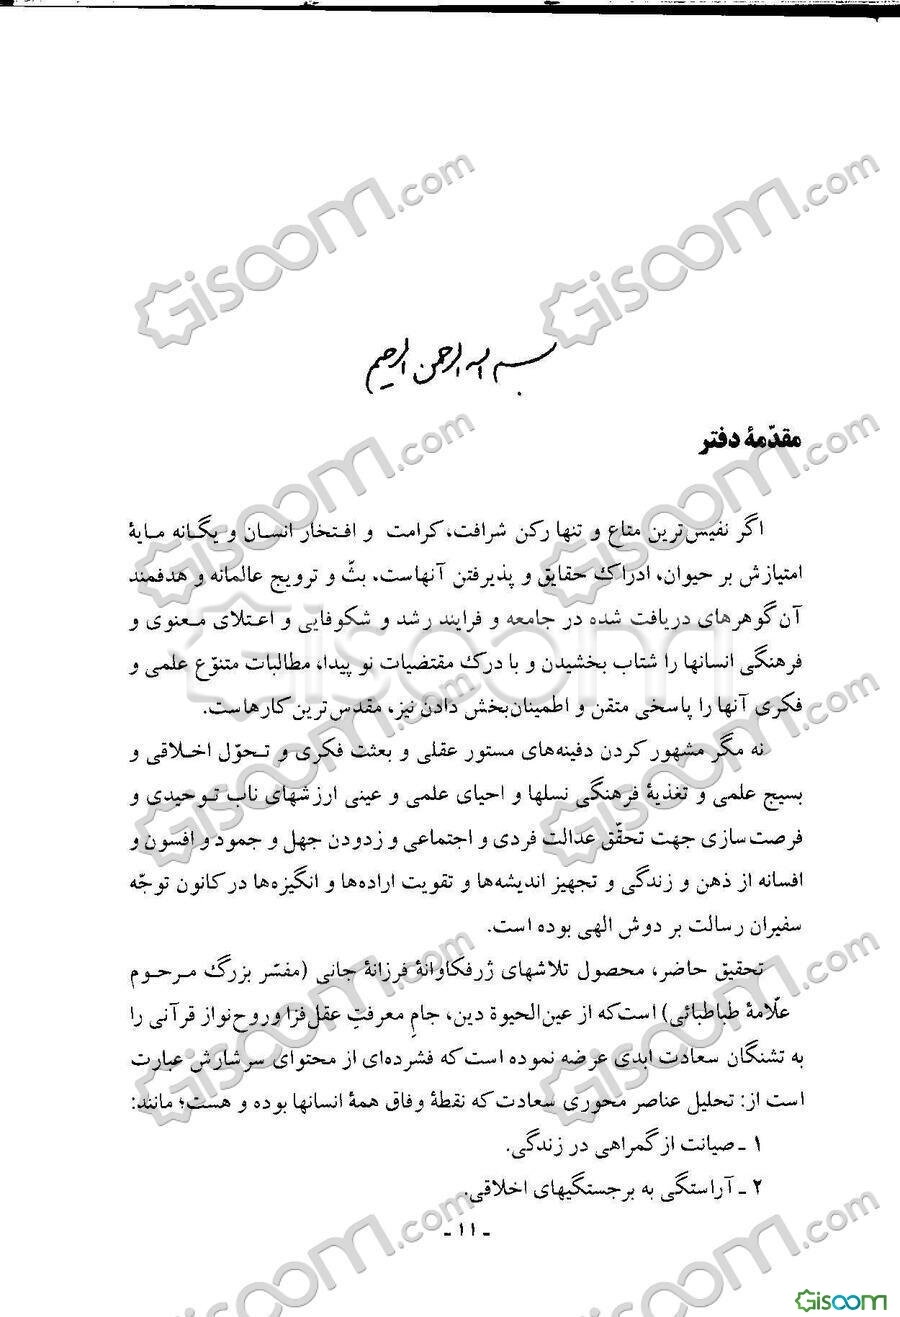 بسم الله الرحمن الرحیم
مقدّمهٔ دفتر
اگر نفیس‌ترین متاع و تنها رکن شرافت، کرامت و افتخار انسان و یگانه مایهٔ
امتیازش بر حیوان، ادراک حقایق و پذیرفتن آنهاست، بثّ و ترویج عالمانه و هدفمند
آن گوهرهای دریافت شده در جامعه و فرایند رشد و شکوفایی و اعتلای معنوی و
فرهنگی انسانها را شتاب بخشیدن و با درک مقتضیات نو پیدا، مطالبات متنوّع علمی و
فکری آنها را پاسخی متقن و اطمینان‌بخش دادن نیز، مقدس‌ترین کارهاست.
نه مگر مشهور کردن دفینه‌های مستور عقلی و بعثت فکری و تحوّل اخلاقی و
بسیج علمی و تغذیهٔ فرهنگی نسلها و احیای علمی و عینی ارزشهای ناب توحیدی و
فرصت‌سازی جهت تحقّق عدالت فردی و اجتماعی و زدودن جهل و جمود و افسون و
افسانه از ذهن و زندگی و تجهیز اندیشه‌ها و تقویت اراده‌ها و انگیزه‌ها در کانون توجّه
سفیران رسالت بر دوش الهی بوده است.
تحقیق حاضر، محصول تلاشهای ژرفکاوانهٔ فرزانهٔ جانی (مفسّر بزرگ مرحوم
علّامهٔ طباطبائی) است‌که از عین‌الحیوة دین، جامِ معرفتِ عقل‌فزا و روح‌نواز قرآنی را
به تشنگان سعادت ابدی عرضه نموده است‌که فشرده‌ای از محتوای سرشارش عبارت
است از: تحلیل عناصر محوری سعادت که نقطهٔ وفاق همهٔ انسانها بوده و هست؛ مانند:
۱ ـ صیانت از گمراهی در زندگی.
۲ ـ آراستگی به برجستگیهای اخلاقی.
ـ ۱۱ ـ
Gisoom.com
Gisoom.com
Gisoom.com
Gisoom.com
Gisoom
Gisoom.com
Gisoom.com
Gisoom.com
Gisoom.com
Gisoom.com
Gisoom.com
Gisoom